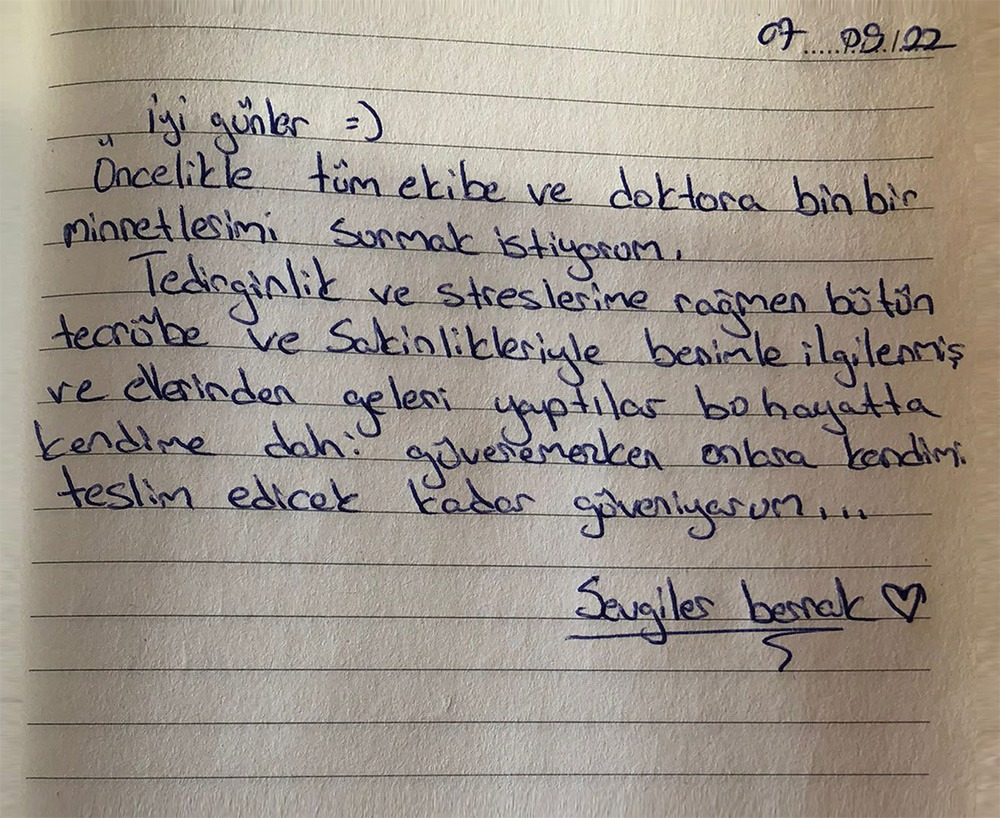 07.....09./22
iyi günler =)
Öncelikle tüm ekibe ve doktora binbir
minnetlerimi sunmak istiyorum.
Tedirginlik ve streslerime rağmen bütün
tecrübe ve Sakinlikleriyle benimle ilgilenmiş
ve ellerinden geleni yaptılar bu hayatta
kendime dahi güvenemezken onlara kendimi
teslim edicek kadar güveniyorum...
Sevgiler